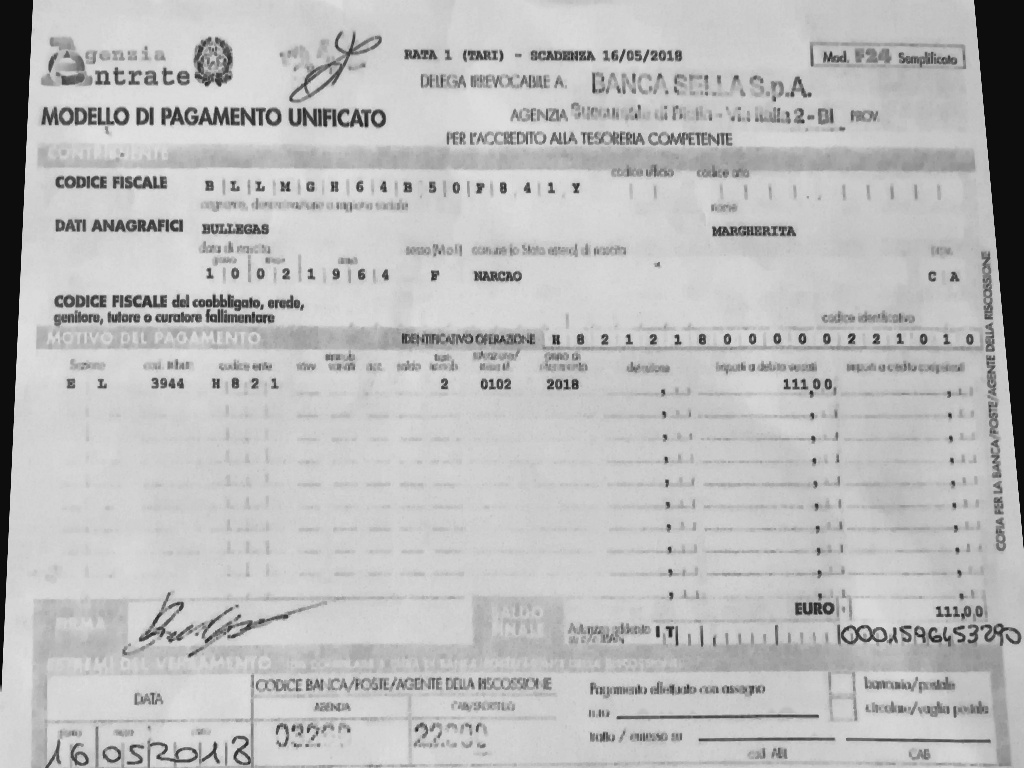 Agenzia Entrate
RATA 1 (TARI) - SCADENZA 16/05/2018
Mod. F24 Semplificato
DELEGA IRREVOCABILE A: BANCA SELLA S.p.A.
MODELLO DI PAGAMENTO UNIFICATO
AGENZIA Succursale di Biella - Via Italia 2 - BI PROV.
PER L'ACCREDITO ALLA TESORERIA COMPETENTE
CONTRIBUENTE
codice ufficio codice atto
CODICE FISCALE B L L M G H 6 4 B 5 0 F 8 4 1 Y
cognome, denominazione o ragione sociale nome
DATI ANAGRAFICI BULLEGAS MARGHERITA
data di nascita sesso (M o F) comune (o Stato estero) di nascita prov.
giorno mese anno
1 0 0 2 1 9 6 4 F NARCAO C A
CODICE FISCALE del coobbligato, erede,
genitore, tutore o curatore fallimentare
codice identificativo
MOTIVO DEL PAGAMENTO IDENTIFICATIVO OPERAZIONE H 8 2 1 2 1 8 0 0 0 0 0 2 2 1 0 1 0
Sezione cod. tributo codice ente ravv. immob. variati acc. saldo num. immob. rateazione/ mese rif. anno di riferimento detrazione importi a debito versati importi a credito compensati
E L 3944 H 8 2 1 2 0102 2018 111,00
EURO 111,00
FIRMA
SALDO FINALE
IT 10001596453290
ESTREMI DEL VERSAMENTO
DATA CODICE BANCA/POSTE/AGENTE DELLA RISCOSSIONE
AZIENDA CAB/SPORTELLO
Pagamento effettuato con assegno bancario/postale
circolare/vaglia postale
tratto / emesso su
cod. ABI CAB
16 05 2018
COPIA PER LA BANCA/POSTE/AGENTE DELLA RISCOSSIONE